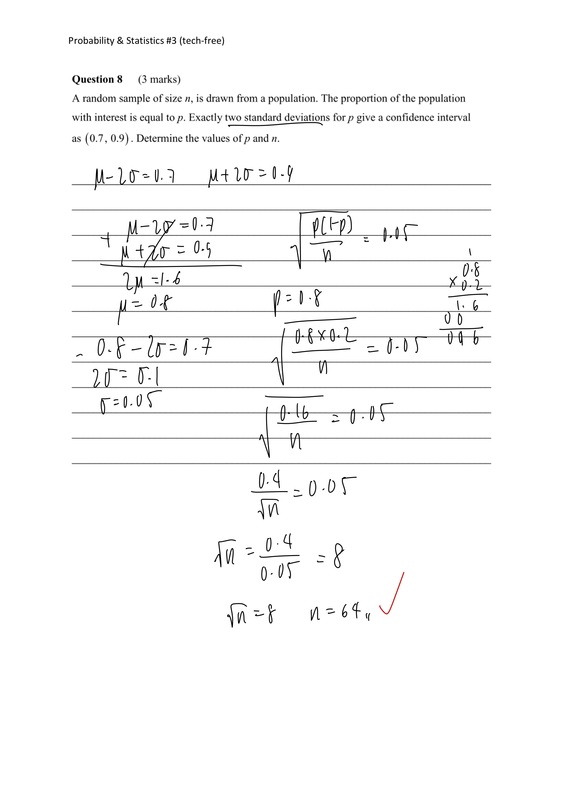 Probability & Statistics #3 (tech-free)
Question 8 (3 marks)
A random sample of size n, is drawn from a population. The proportion of the population
with interest is equal to p. Exactly two standard deviations for p give a confidence interval
as (0.7, 0.9). Determine the values of p and n.
μ-2σ=0.7 μ+2σ=0.9
μ-2σ=0.7
+ μ+2σ=0.9
2μ=1.6
μ=0.8
- 0.8-2σ=0.7
2σ=0.1
σ=0.05
√(p(1-p)/n) = 0.05
p=0.8
√(0.8×0.2/n) = 0.05
√(0.16/n) = 0.05
0.4/√n = 0.05
√n = 0.4/0.05 = 8
√n=8 n=64
1
0.8
×0.2
1.6
00